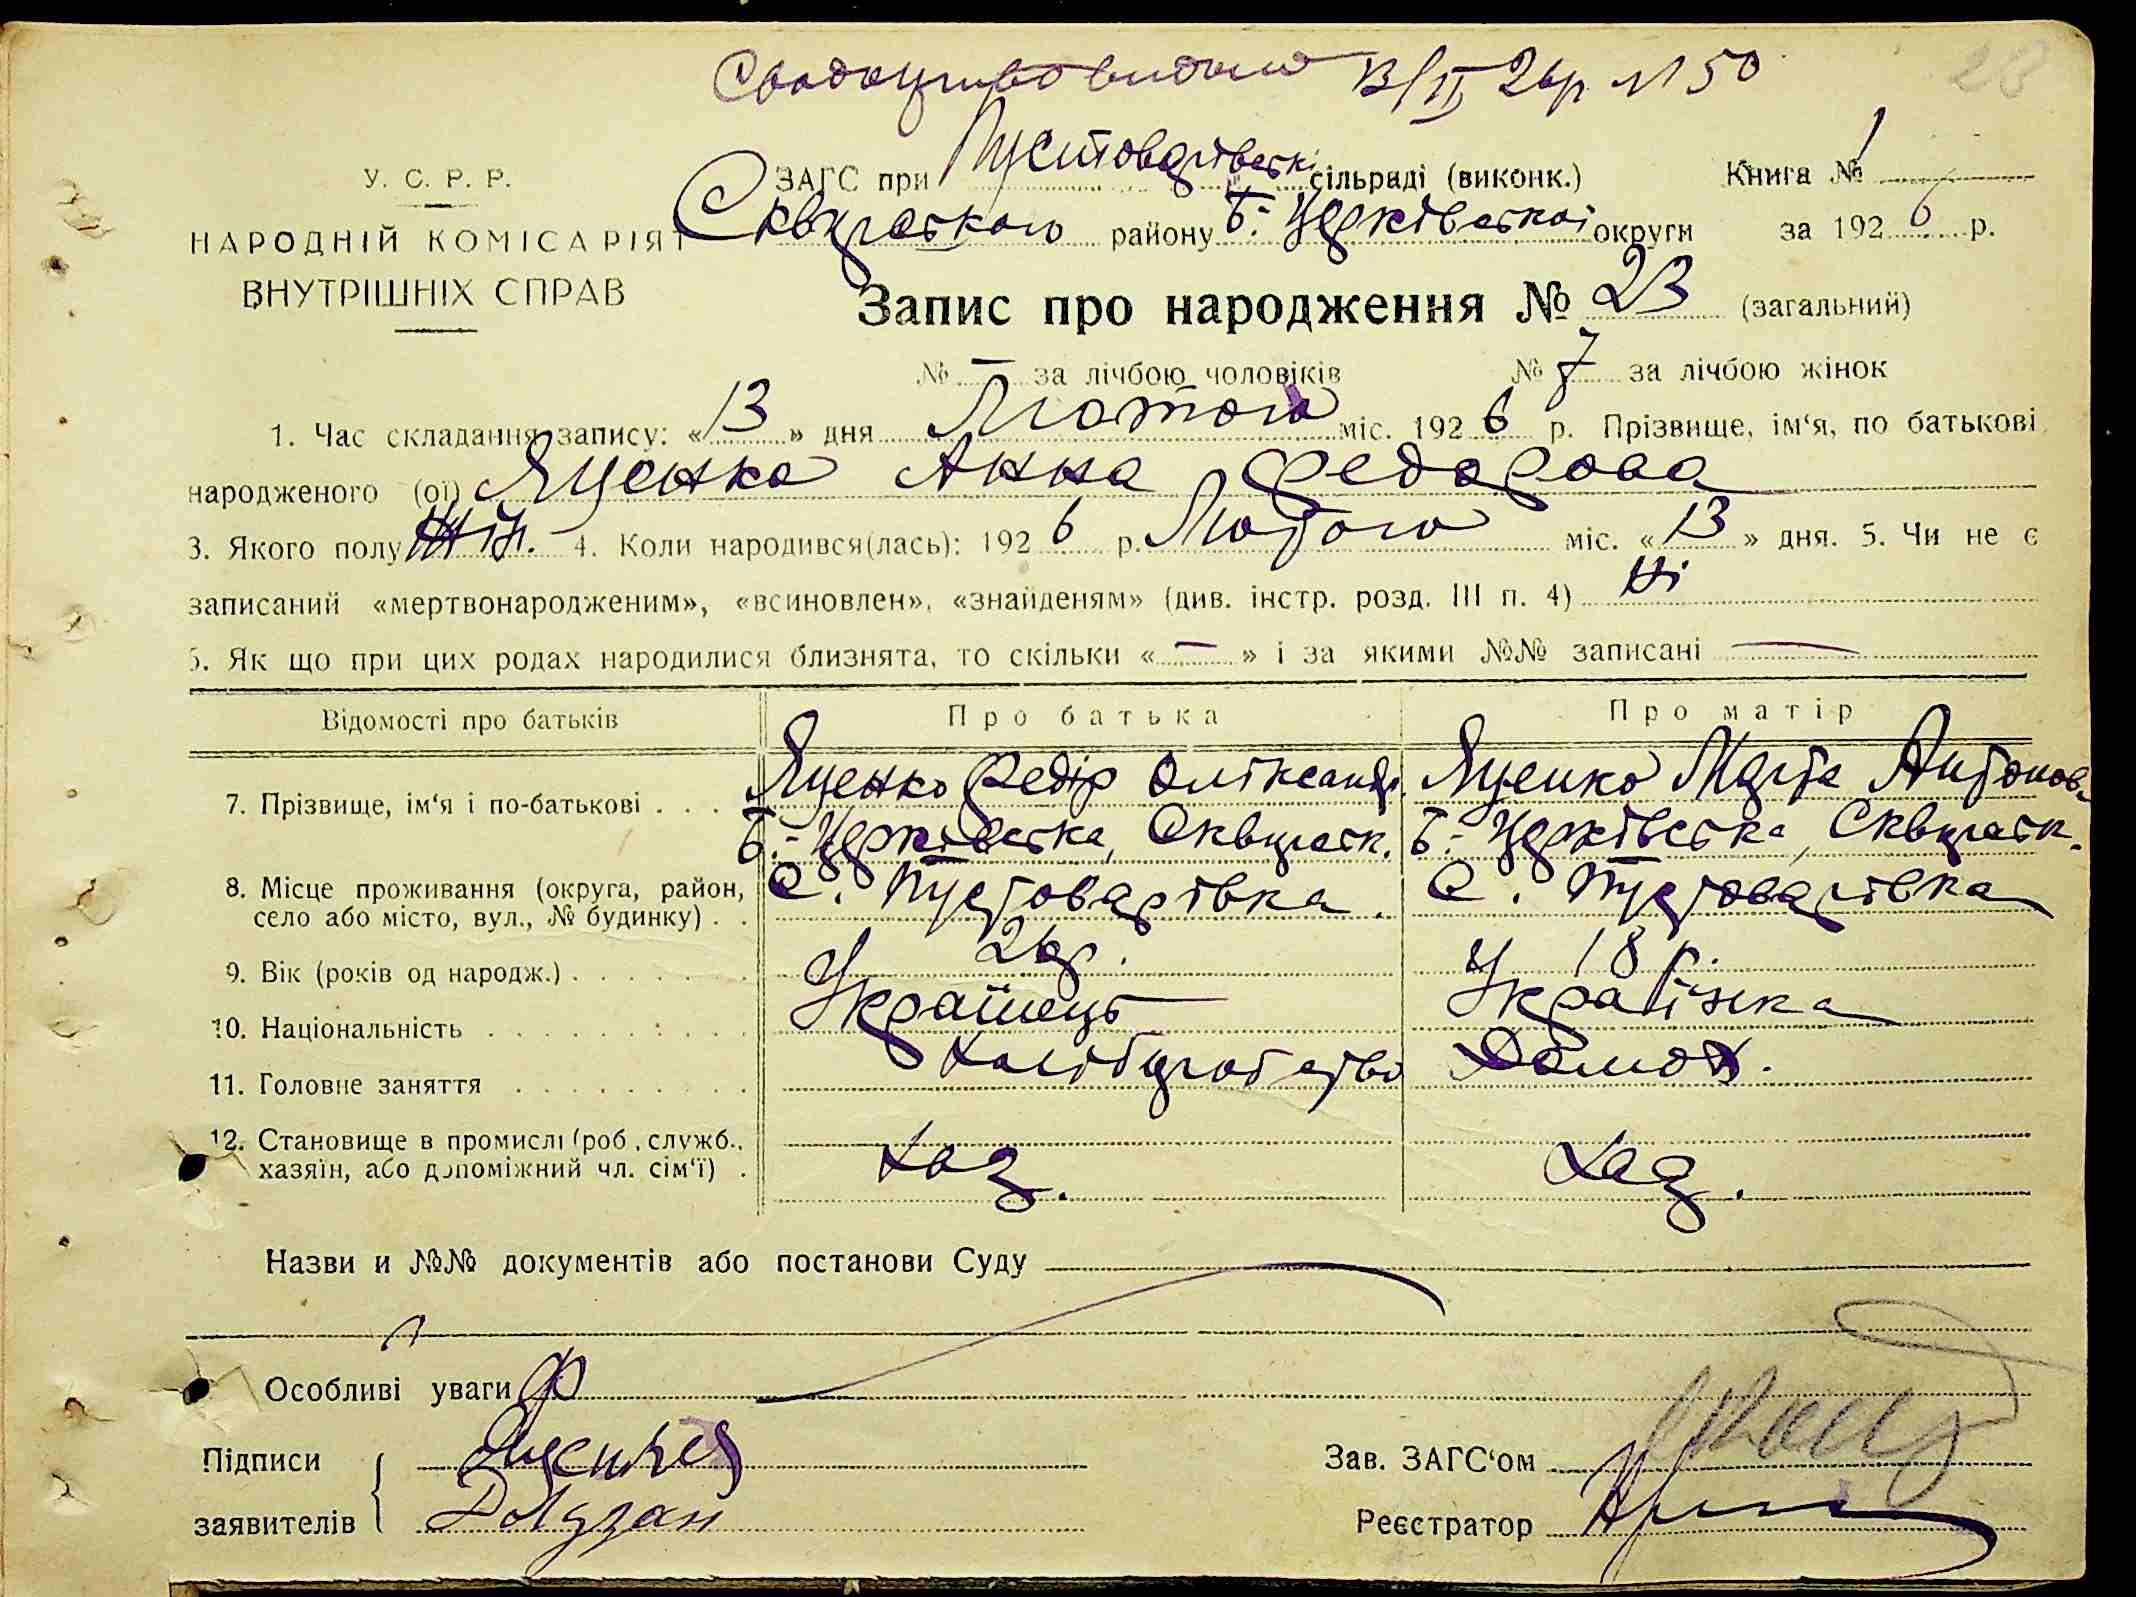 Свадоцтво видано 13/II 26р. №50
28
У. С. Р. Р.
НАРОДНІЙ КОМІСАРІЯТ
ВНУТРІШНІХ СПРАВ
ЗАГС при Пустоварівськ. сільраді (виконк.) Книга № 1
Сквирського району Б.-Церківської округи за 1926 р.
Запис про народження № 23 (загальний)
№ — за лічбою чоловіків № 7 за лічбою жінок
1. Час складання запису: «13» дня Лютого міс. 1926 р. Прізвище, ім‘я, по батькові
народженого (ої) Яценко Анна Федорова
3. Якого полу Жін. 4. Коли народився(лась): 1926 р. Лютого міс. «13» дня. 5. Чи не є
записаний «мертвонародженим», «всиновлен», «знайденям» (див. інстр. розд. III п. 4) Ні
5. Як що при цих родах народилися близнята, то скільки «—» і за якими №№ записані —
Відомості про батьків Про батька Про матір
7. Прізвище, ім‘я і по-батькові . . . . Яценко Федір Олександр. Яценко Марта Антонов.
Б.-Церківська, Сквирськ. Б.-Церківська, Сквирськ.
8. Місце проживання (округа, район, село або місто, вул., № будинку) . . С. Пустоварівка. С. Пустоварівка
9. Вік (років од народж.) . . . . . . . 26р. 18 р.
10. Національність . . . . . . . . . . Українець Українка
11. Головне заняття . . . . . . . . . Хліборобство Домох.
12. Становище в промислі (роб., служб., хазяїн, або допоміжний чл. сім‘ї) . Хаз. Хаз.
Назви и №№ документів або постанови Суду
Особливі уваги
Підписи Ф Яценко Зав. ЗАГС‘ом
заявителів Реєстратор